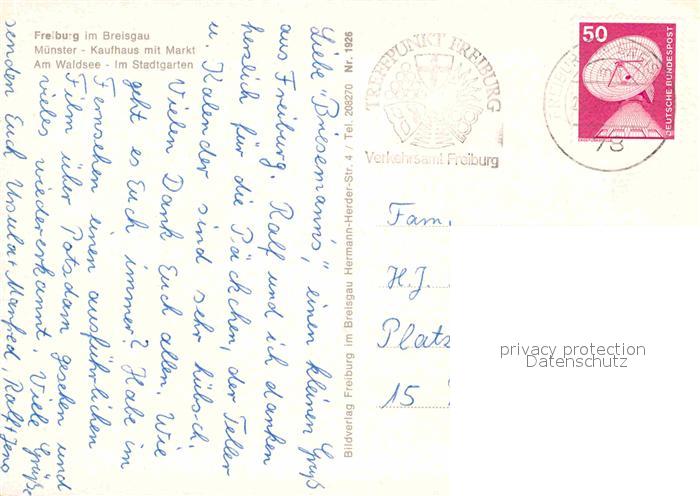 Freiburg im Breisgau
Münster - Kaufhaus mit Markt
Am Waldsee - Im Stadtgarten
Liebe "Briesemann's," einen kleinen Gruß
aus Freiburg. Ralf und ich danken
herzlich für die Päckchen, der Teller
u. Kalender sind sehr hübsch.
Vielen Dank Euch allen. Wie
geht es Euch immer? Habe im
Fernsehen einen ausführlichen
Film über Potsdam gesehen und
vieles wiedererkannt. Viele Grüße
senden Euch Ursula + Manfred, Ralf + Jens
Bildverlag Freiburg im Breisgau Hermann-Herder-Str. 4 / Tel. 208270 Nr. 1926
TREFFPUNKT FREIBURG
Verkehrsamt Freiburg
50
DEUTSCHE BUNDESPOST
78
Fam.
H.J.
Platz
15
privacy protection
Datenschutz